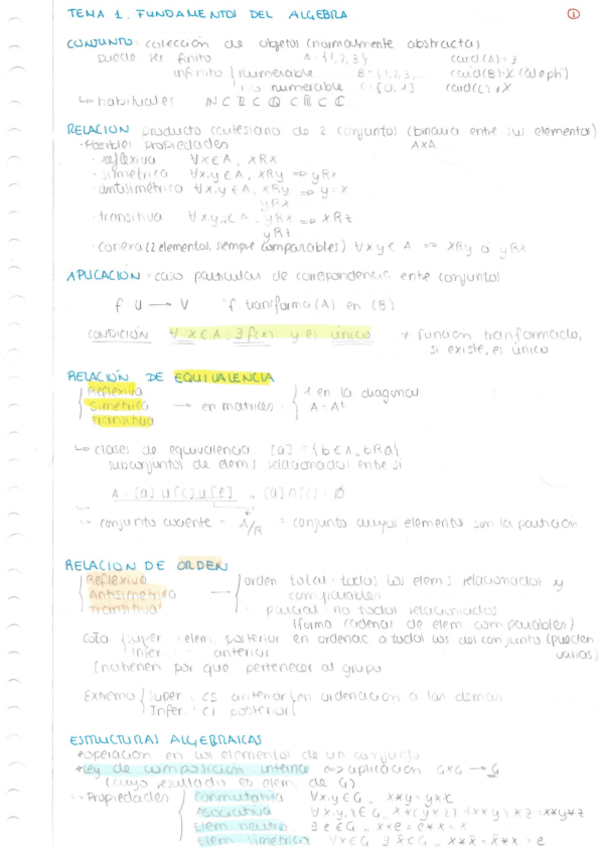 TEMA 1. FUNDAMENTOS DEL ALGEBRA
1
CONJUNTO: colección de objetos (normalmente abstracta)
puede ser finito A = {1, 2, 3} card(A) = 3
infinito numerable B = {1, 2, 3, ... card(B) = ℵ (aleph)
no numerable C = [0, 1] card(C) ≠ ℵ
↳ habituales N ⊂ Z ⊂ Q ⊂ R ⊂ C
RELACION producto cartesiano de 2 conjuntos (binaria entre sus elementos)
· Posibles propiedades AxA
· reflexiva ∀x∈A, xRx
· simetrica ∀x,y∈A, xRy ⇒ yRx
· antisimétrica ∀x,y∈A, xRy ⇒ y=x
yRx
· transitiva xRz
yRz
· conexa (2 elementos, siempre comparables) ∀xy∈A ⇒ xRy o yRx
APLICACIÓN: caso particular de correspondencia entre conjuntos
f: U → V "f transforma (A) en (B)
CONDICIÓN ∀x∈A; ∃f(x) y es único * función transformado,
si existe, es único
RELACIÓN DE EQUIVALENCIA
Reflexiva 1 en la diagonal
Simétrica → en matrices: A = Aᵗ
Transitiva
↳ clases de equivalencia [a] = {b∈A, bRa}
subconjuntos de elems relacionados entre si
A = [a] ∪ [c] ∪ [e] , [a]∩[c] = ∅
conjunto cociente = A/R = conjunto cuyos elementos son la partición
RELACION DE ORDEN
Reflexiva orden total: todos los elems relacionados y
Antisimétrica comparables
Transitiva parcial no todos relacionados
(forma cadenas de elem comparables)
Cota super: elem. posterior en ordenac a todos los del conjunto (pueden
Infer: anterior varias)
(no tienen por que pertenecer al grupo
Extremo Super: CS anterior en ordenación a las demas
Infer: CI posterior
ESTRUCTURAS ALGEBRAICAS
*operación en los elementos de un conjunto
*Ley de composición interna ⇔ aplicación G×G → G
(cuyo resultado es elem. de G)
- Propiedades Conmutativa ∀x,y∈G, x*y = y*x
Asociativa ∀x,y,z∈G, x*(y*z) = (x*y)*z = x*y*z
Elem neutro ∃e∈G, x*e = e*x = x
Elem simétrico ∀x∈G ∃x̄∈G, x*x̄ = x̄*x = e